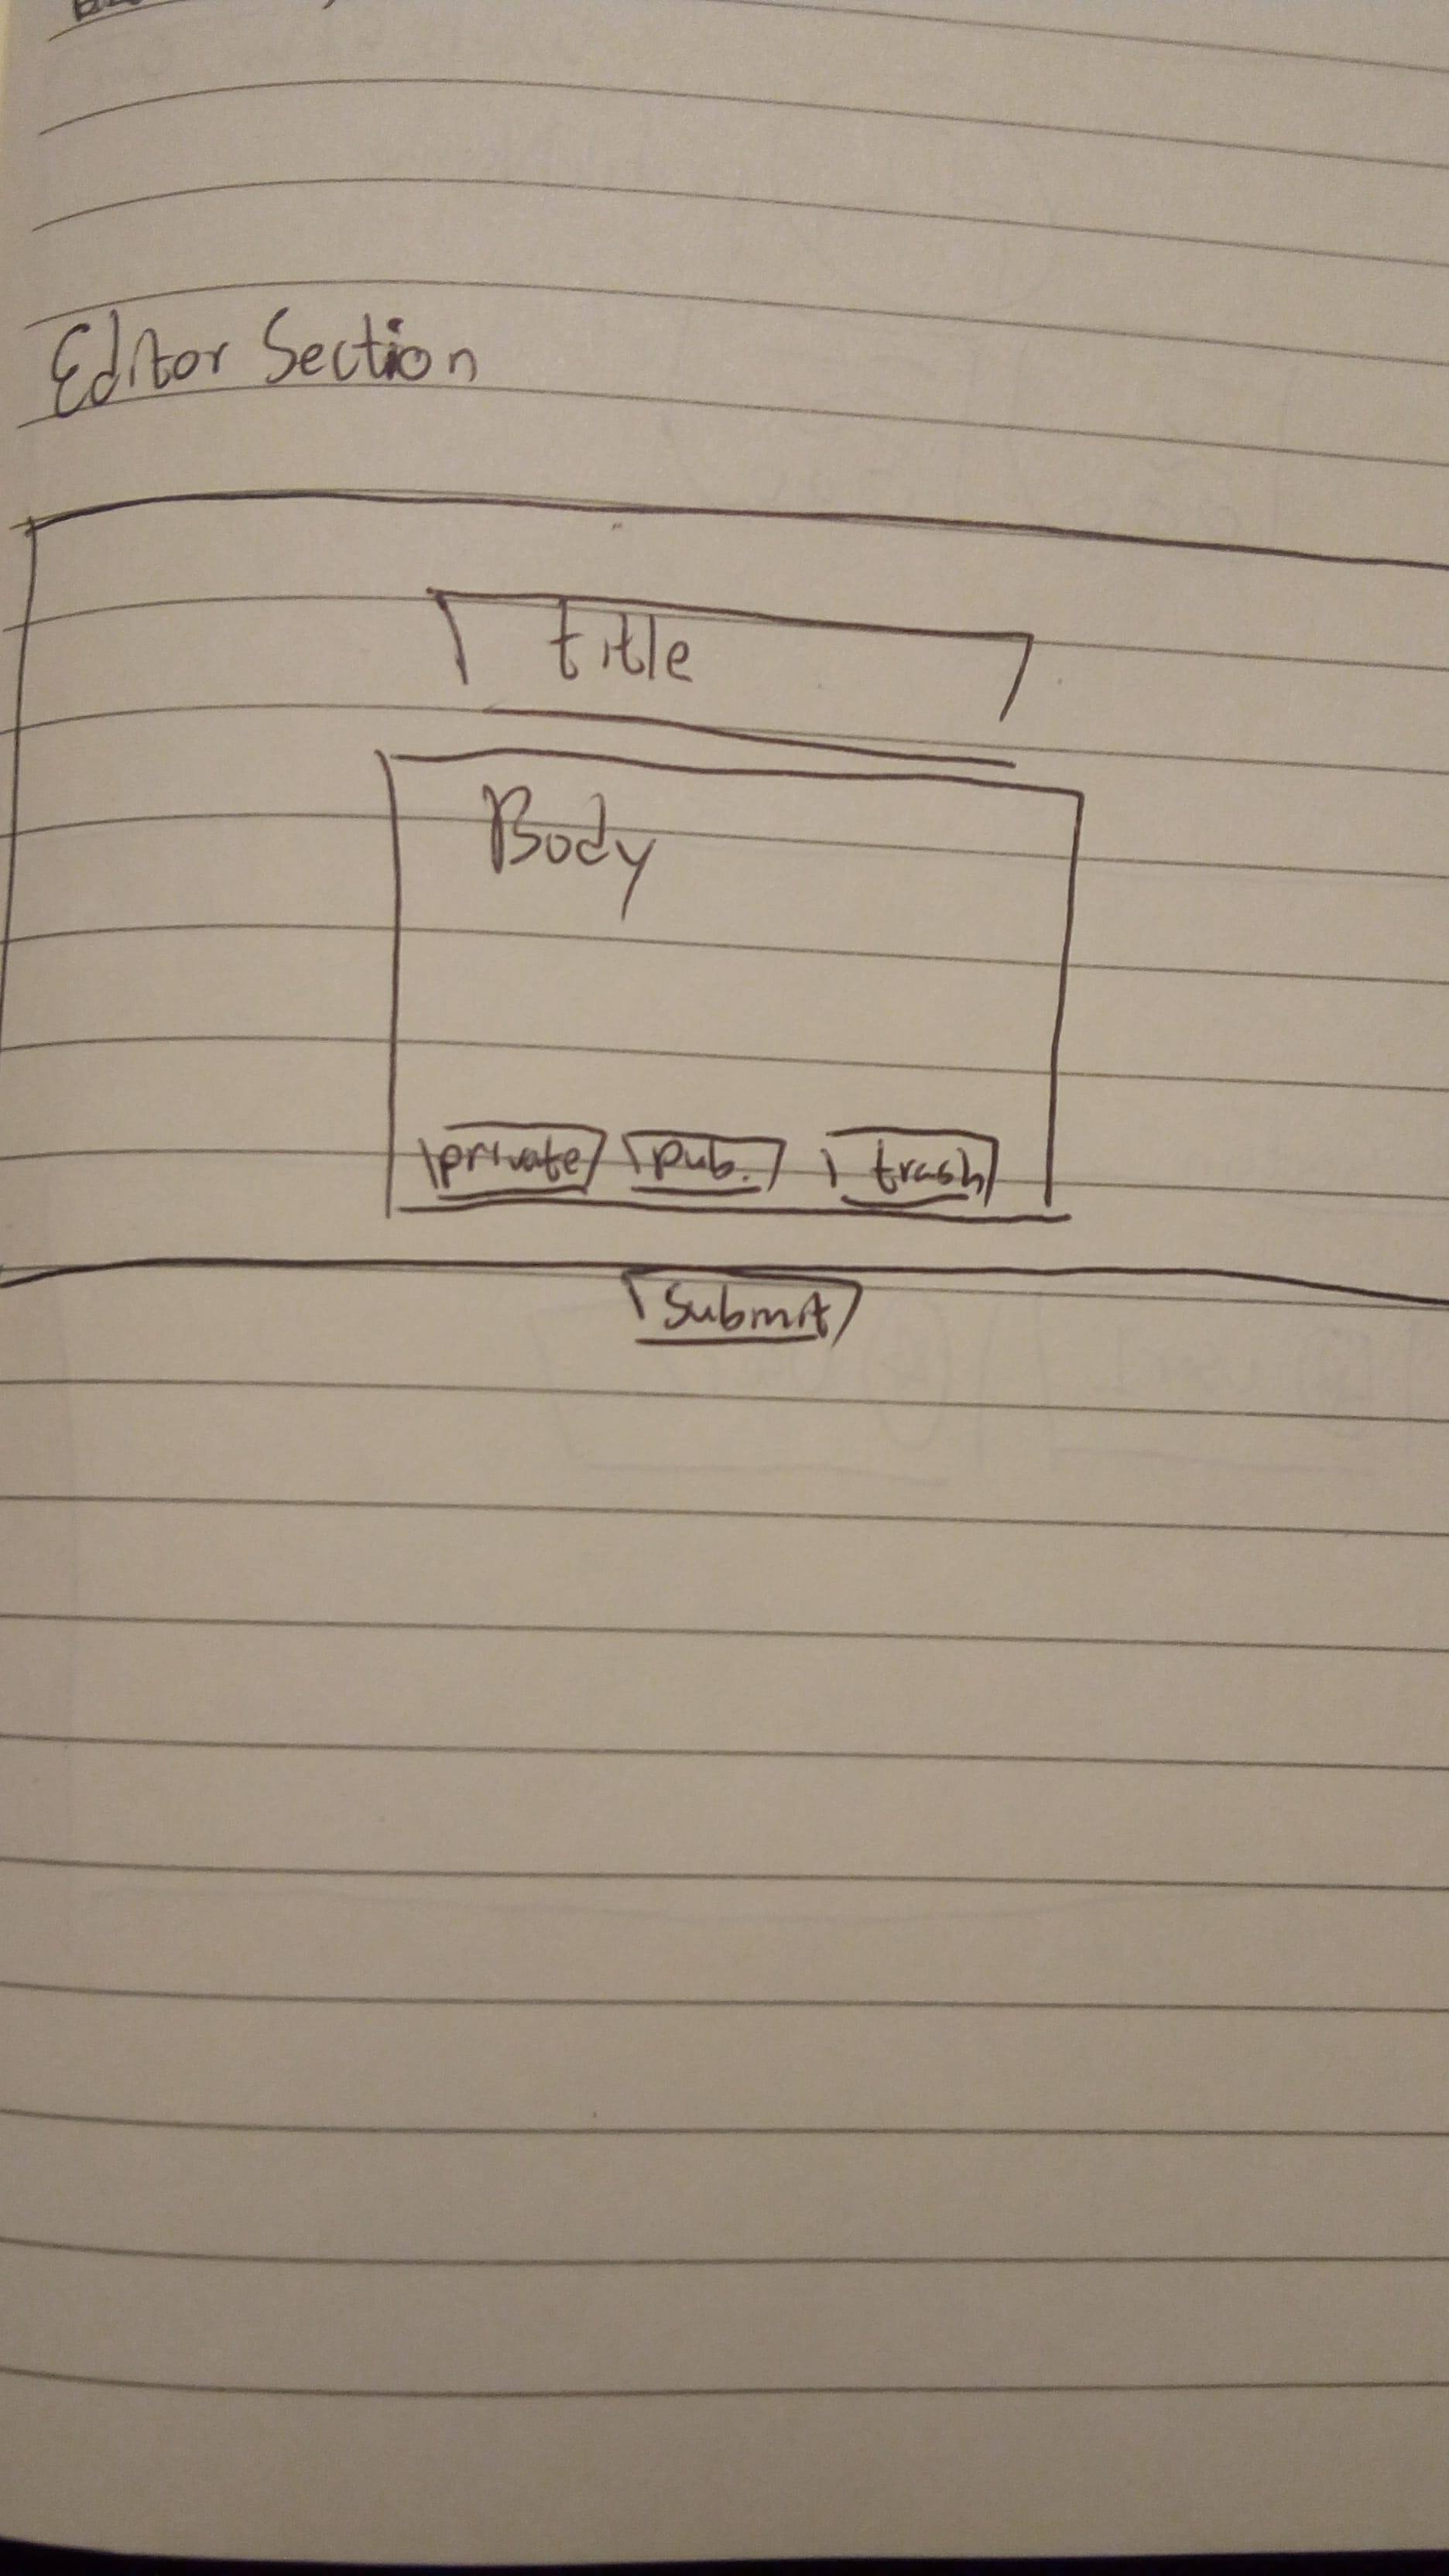 Editor Section
title
Body
private pub. trash
Submit